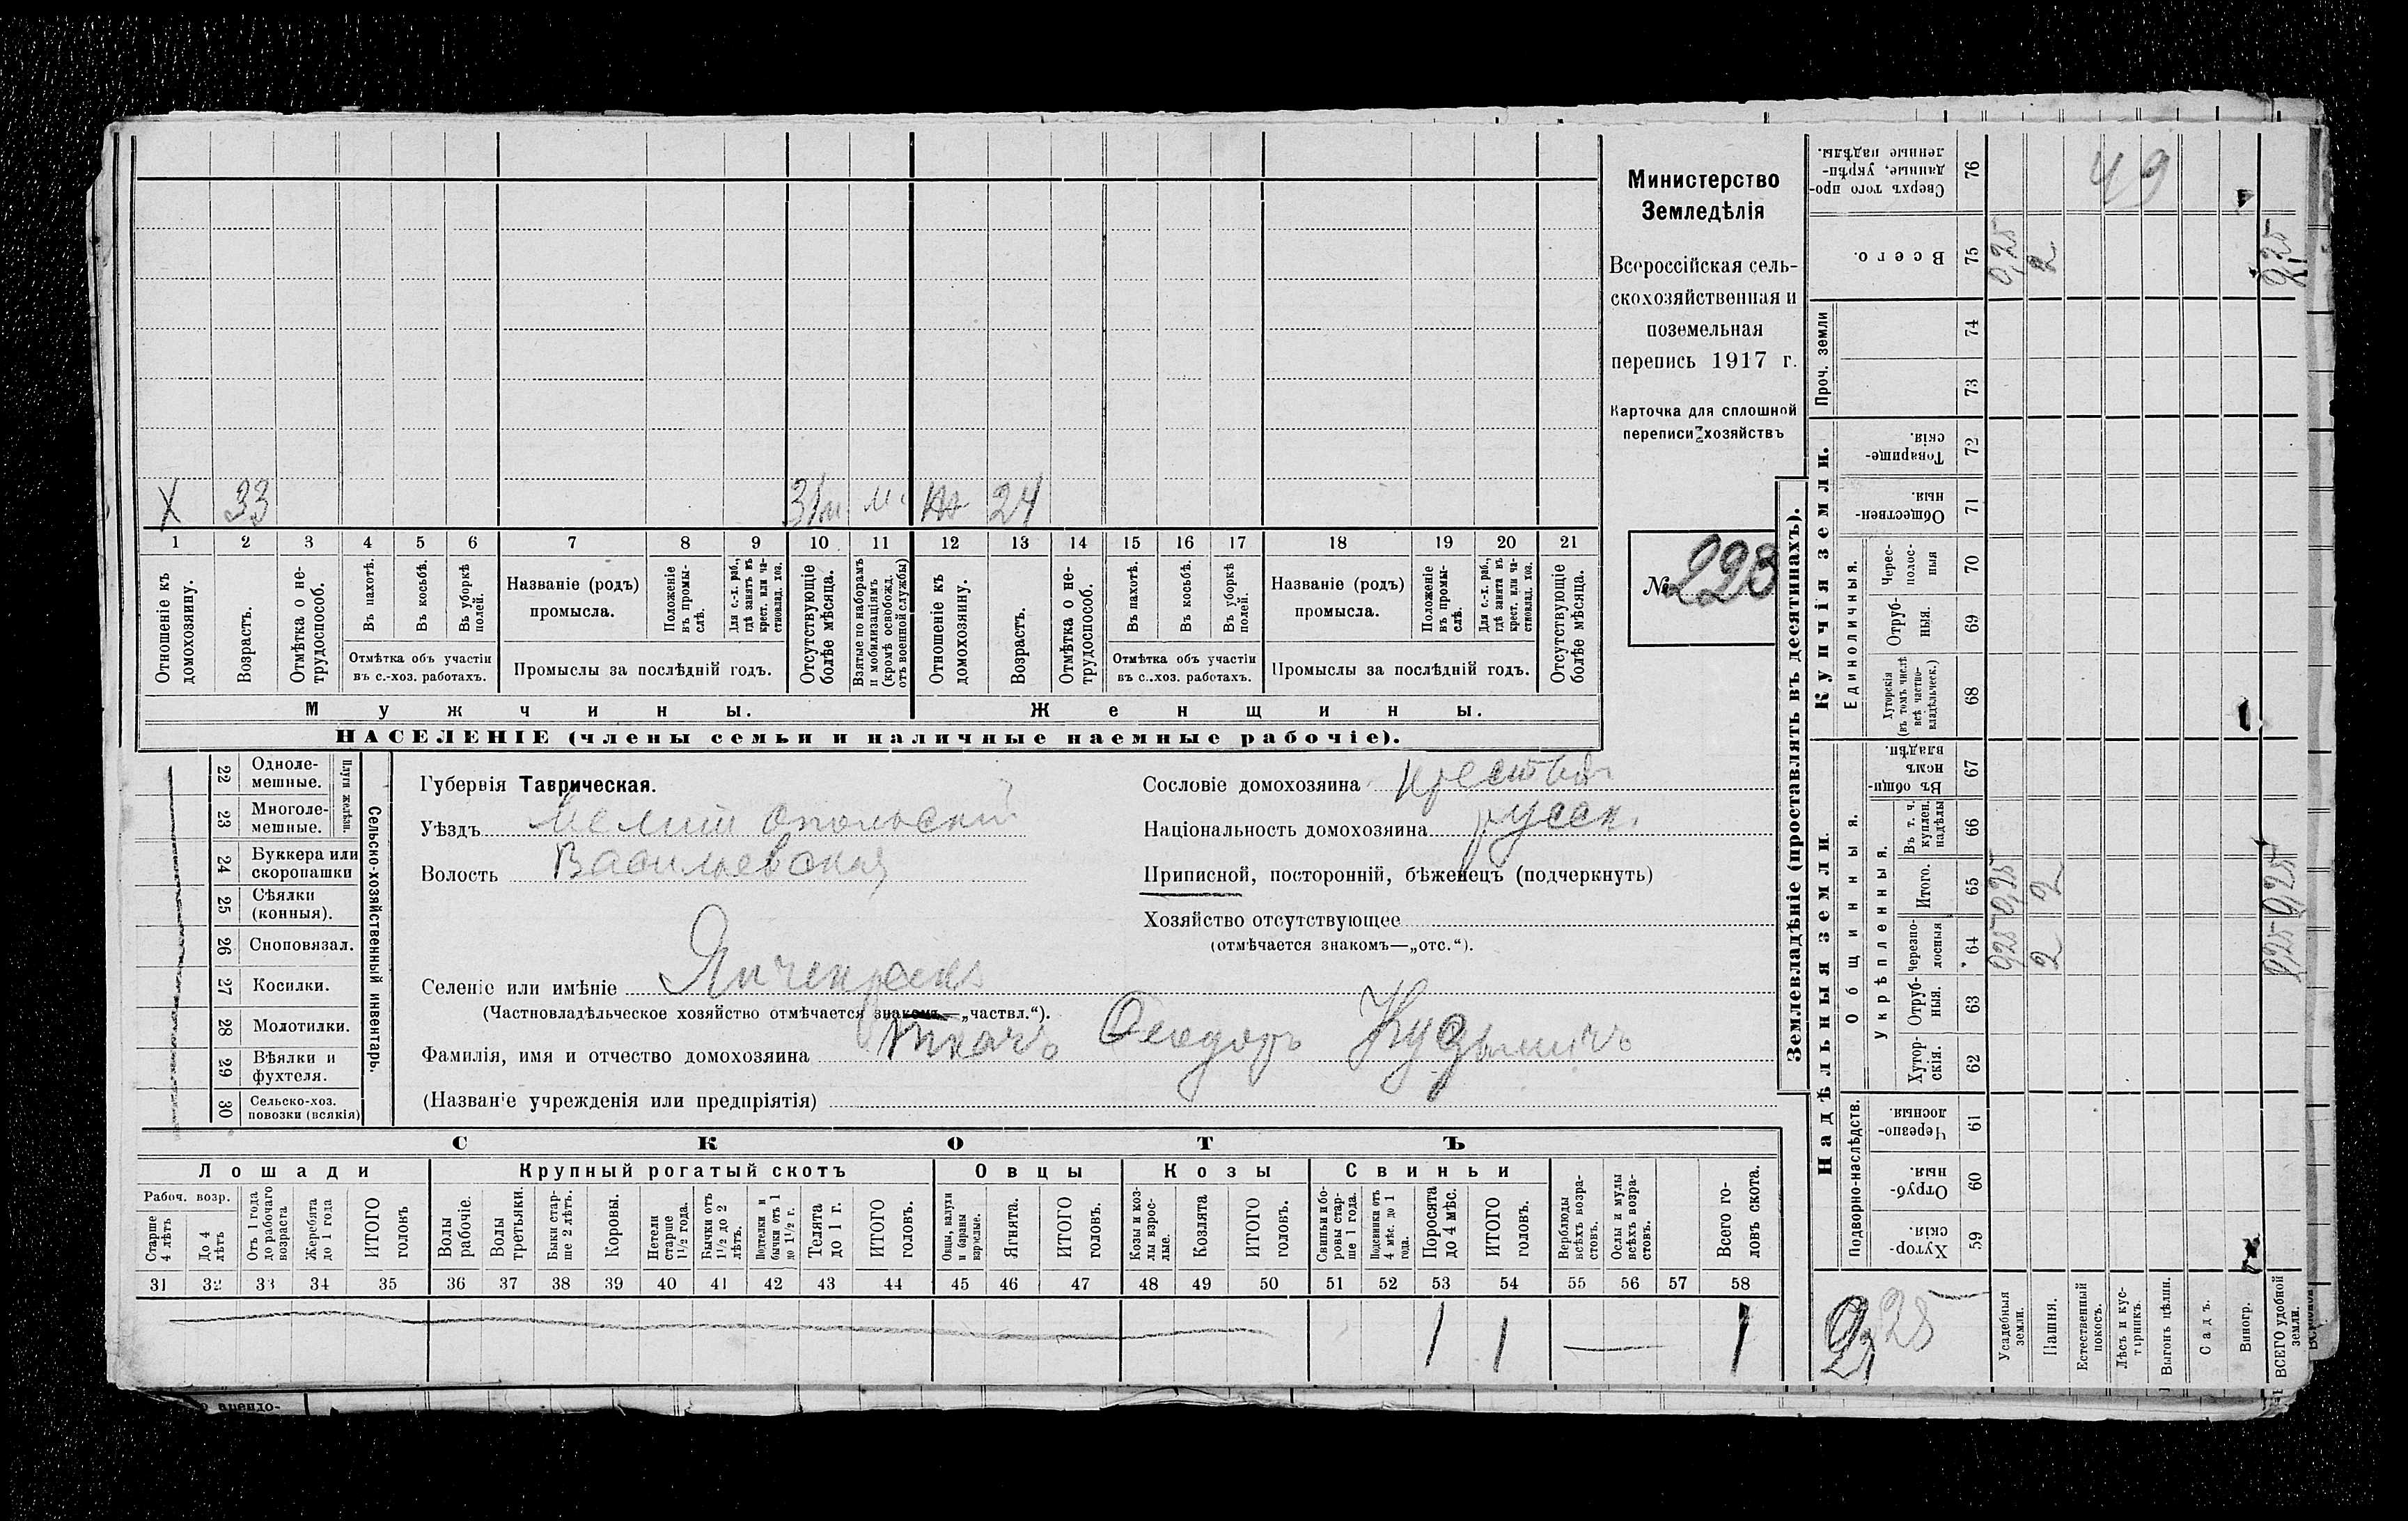 Министерство
Земледѣлія
Всероссійская сель-
скохозяйственная и
поземельная
перепись 1917 г.
Карточка для сплошной
переписи хозяйствъ
№ 228
X 33 31/м м. 24
1 2 3 4 5 6 7 8 9 10 11 12 13 14 15 16 17 18 19 20 21
Отношеніе къ домохозяину.
Возрастъ.
Отмѣтка о не-трудоспособ.
Въ пахотѣ.
Въ косьбѣ.
Въ уборкѣ полей.
Отмѣтка объ участіи
въ с.-хоз. работахъ.
Названіе (родъ)
промысла.
Положеніе въ промы-слѣ.
Для с.-х. раб., гдѣ занятъ въ крест. или ча-стновлад. хоз.
Промыслы за послѣдній годъ.
Отсутствующіе болѣе мѣсяца.
Взятые по наборамъ и мобилизаціямъ (кромѣ освобожд. отъ военной службы)
Отношеніе къ домохозяину.
Возрастъ.
Отмѣтка о не-трудоспособ.
Въ пахотѣ.
Въ косьбѣ.
Въ уборкѣ полей.
Отмѣтка объ участіи
въ с.-хоз. работахъ.
Названіе (родъ)
промысла.
Положеніе въ промы-слѣ.
Для с.-х. раб., гдѣ занята въ крест. или ча-стновлад. хоз.
Промыслы за послѣдній годъ.
Отсутствующіе болѣе мѣсяца.
Мужчины. Женщины.
НАСЕЛЕНІЕ (члены семьи и наличные наемные рабочіе).
22 Одноле-мешные.
23 Многоле-мешные.
Плуги желѣзн.
24 Буккера или скоропашки
25 Сѣялки (конныя).
26 Сноповязал.
27 Косилки.
28 Молотилки.
29 Вѣялки и фухтеля.
30 Сельско-хоз. повозки (всякія)
Сельско-хозяйственный инвентарь.
Губернія Таврическая.
Уѣздъ Мелитопольскій
Волость Васильевская
Сословіе домохозяина крестьян
Національность домохозяина русск.
Приписной, посторонній, бѣженецъ (подчеркнуть)
Хозяйство отсутствующее
(отмѣчается знакомъ—„отс.“).
Селеніе или имѣніе Янчекракъ
(Частновладѣльческое хозяйство отмѣчается знакомъ—„частвл.“).
Фамилія, имя и отчество домохозяина Ткачъ Феодоръ Кузьмичъ
(Названіе учрежденія или предпріятія)
СКОТЪ
Лошади Крупный рогатый скотъ Овцы Козы Свиньи
Рабоч. возр.
Старше 4 лѣтъ
До 4 лѣтъ
Отъ 1 года до рабочаго возраста
Жеребята до 1 года
ИТОГО головъ
Волы рабочіе.
Волы третьяки.
Быки стар-ше 2 лѣтъ.
Коровы.
Нетели старше 1½ года.
Бычки отъ 1½ до 2 лѣтъ.
Подтелки и бычки отъ 1 до 1½ г.
Телята до 1 г.
ИТОГО головъ.
Овцы, валухи и бараны взрослые.
Ягнята.
ИТОГО головъ.
Козы и коз-лы взрос-лые.
Козлята
ИТОГО головъ.
Свиньи и бо-ровы стар-ше 1 года.
Подсвинки отъ 4 мѣс. до 1 года.
Поросята до 4 мѣс.
ИТОГО головъ.
Верблюды всѣхъ возра-стовъ.
Ослы и мулы всѣхъ возра-стовъ.
Всего го-ловъ скота.
31 32 33 34 35 36 37 38 39 40 41 42 43 44 45 46 47 48 49 50 51 52 53 54 55 56 57 58
1 1 1
Землевладѣніе (проставлять въ десятинахъ).
Надѣльныя земли.
Купчія земли.
Проч. земли
Подворно-наслѣдств.
Общинныя.
Укрѣпленныя.
Единоличныя.
Хутор-скія. 59
Отруб-ныя. 60
Черезпо-лосныя 61
Хутор-скія. 62
Отруб-ныя. 63
Черезпо-лосныя 64
Итого. 65
Въ т. ч. куплен. надѣлы 66
Въ общин-номъ владѣн. 67
Хуторскія (въ томъ числѣ всѣ частно-владѣльческ.) 68
Отруб-ныя. 69
Черес-полос-ныя 70
Обществен-ныя. 71
Товарище-скія. 72
73
74
Всего. 75
Сверхъ того про-данные, укрѣп-ленные надѣлы. 76
49
Усадебныя земли. 0,25 0,25 0,25
Пашня. 2 2 2
Естественный покосъ.
Лѣсъ и кус-тарникъ.
Выгонъ цѣлин.
Садъ.
Виногр.
ВСЕГО удобной земли. 2,25 2,25 2,25